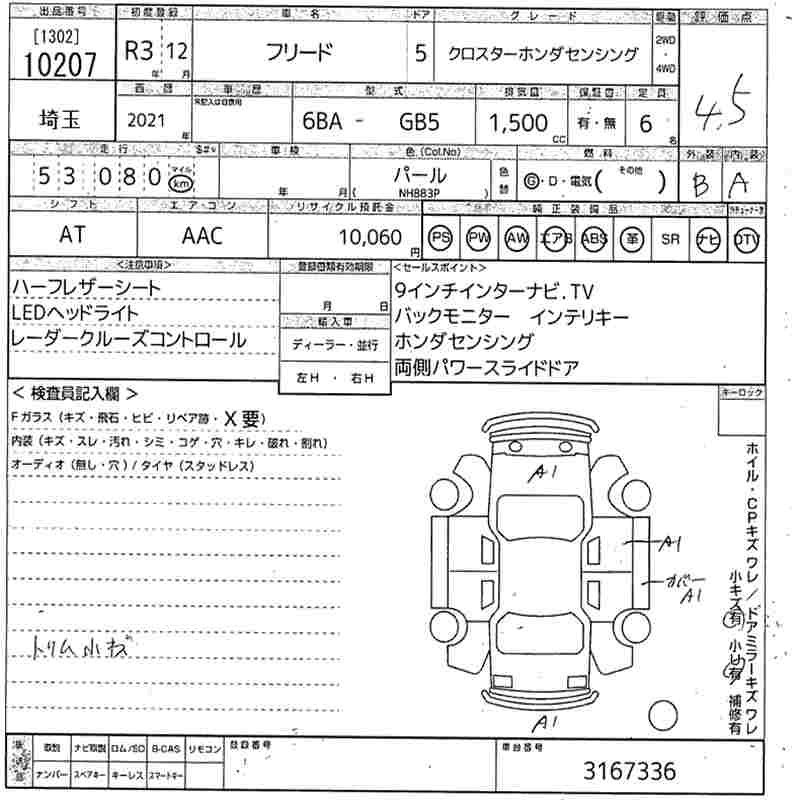 出品番号 初度登録 車名 ドア グレード 駆動 評価点
[1302]
10207 R3年 12月 フリード 5 クロスターホンダセンシング 2WD・4WD 4.5
西暦 車歴 型式 排気量 保証書 定員
埼玉 2021年 未記入は自家用 6BA - GB5 1,500cc 有・無 6名
走行 車検 色(Col.No) 燃料 外装 内装
53080 マイル km 年 月 パール 色替 G・D・電気( その他 ) B A
( NH883P )
シフト エアコン リサイクル預託金 純正装備品
AT AAC 10,060円 PS PW AW エアB ABS 革 SR ナビ DTV
<注意事項> 登録書類有効期限 <セールスポイント>
ハーフレザーシート
LEDヘッドライト
レーダークルーズコントロール
月 日
輸入車
ディーラー・並行
左H ・ 右H
9インチインターナビ.TV
バックモニター インテリキー
ホンダセンシング
両側パワースライドドア
< 検査員記入欄 >
キーロック
Fガラス(キズ・飛石・ヒビ・リペア跡・X要)
内装(キズ・スレ・汚れ・シミ・コゲ・穴・キレ・破れ・割れ)
オーディオ(無し・穴)/タイヤ(スタッドレス)
A1
A1
カバー
A1
A1
トリム小キズ
ホイル・CPキズワレ/ドアミラーキズワレ
小キズ有 小U有 補修有
取説 ナビ取説 ロム/SD B-CAS リモコン 登録番号 車台番号
ナンバー スペアキー キーレス スマートキー
3167336